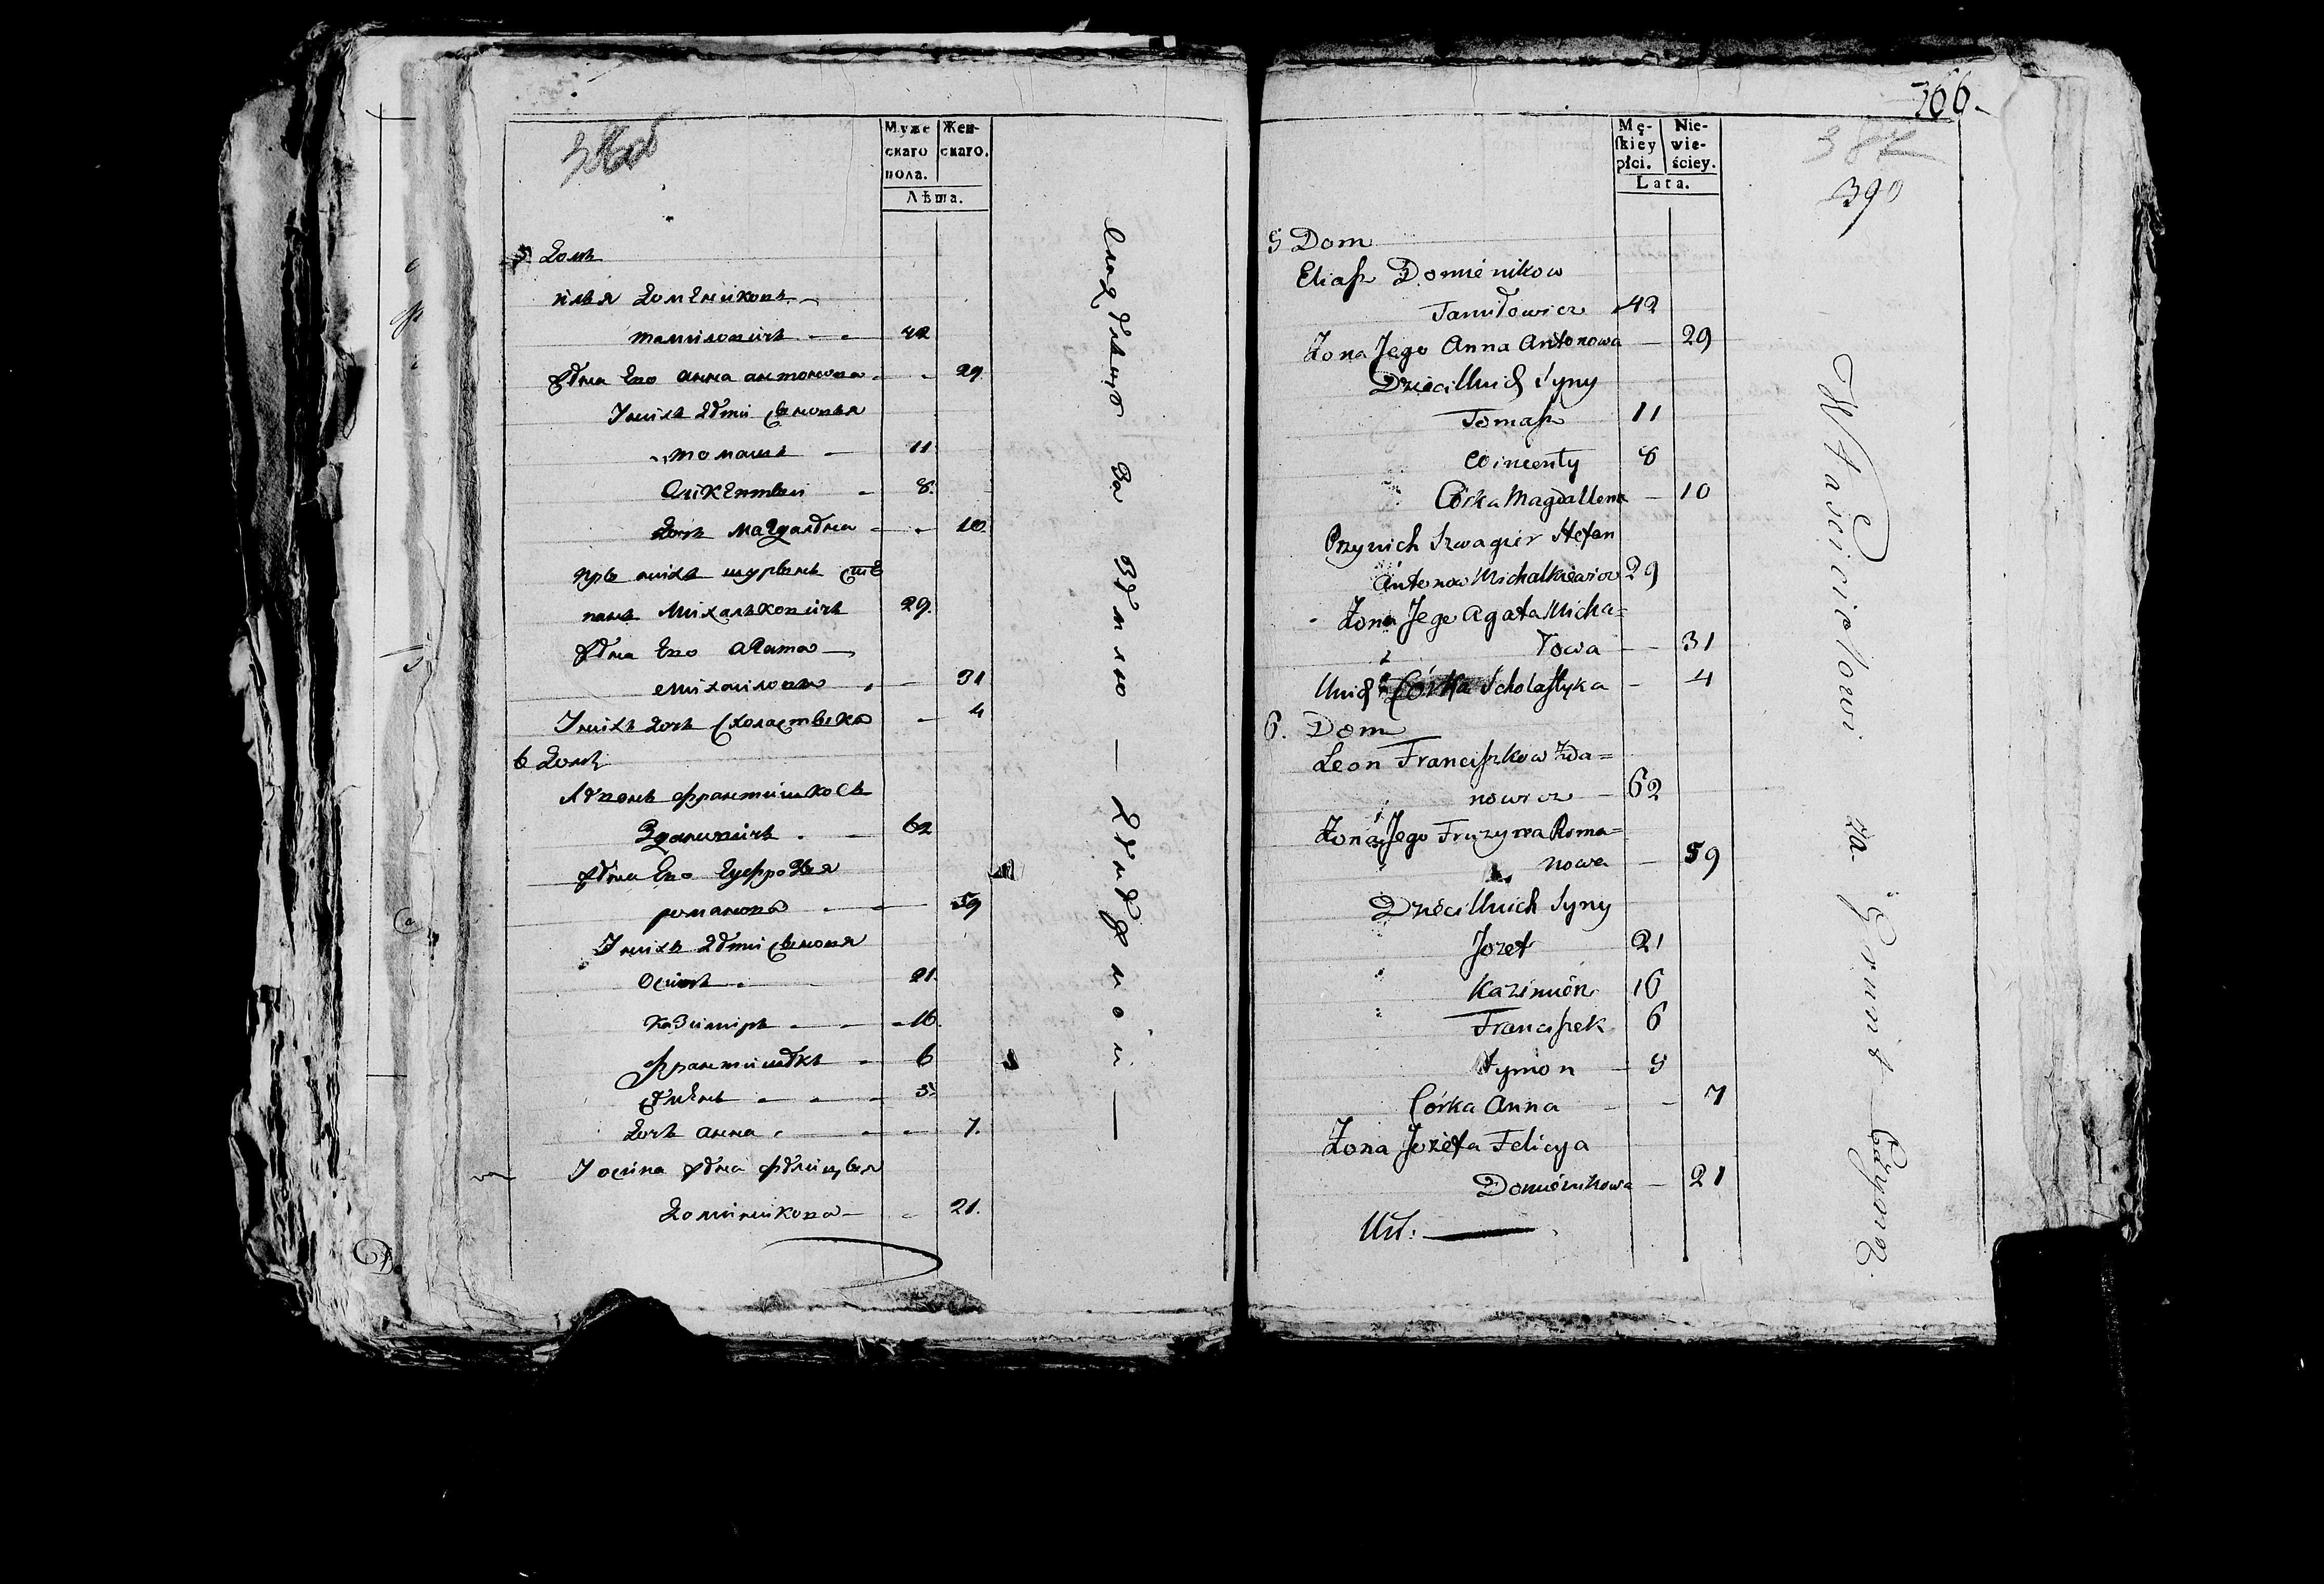 Муже Жен-
скаго скаго.
пола.
Лѣта.
5 Домъ
илья домениковъ
таниловичъ 42
жена его анна антонова 29.
У нихъ дети сыновья
томашъ 11
Викентый 8.
дочь магдалена 10.
при нихъ шуринъ сте
панъ Михалковичъ 29.
жена его агата
михайлова 31
У нихъ дочь схоластыка 4
6 домъ
Левонъ франтишковъ
Здановичъ 62
жена его Еуфрозыя
романова 59
У нихъ дети сыновья
Осипъ 21.
казимиръ 16.
франтишекъ 6
семенъ 5.
дочь анна 7.
У осипа жена фелицыя
доминикова 21.
владельцу за землю — денежной —
366.
390
Mę- Nie-
skiey wie-
płci. ściey.
Lata.
5 Dom
Eliasz Domienikow
Taniłowicz 42
Żona Jego Anna Antonowa — 29
Dzieci Unich Syny
Tomasz 11
Wincenty 8
Córka Magdallena — 10
Przynich Szwagier Stefan
Antonow Michalkiewicz 29
Żona Jego Agata Micha=
łowa — 31
Unich Córka Scholastyka — 4
6. Dom
Leon Franciszkow Zda=
nowicz 62
Żona Jego Fruzyna Roma=
nowa — 59
Dzieci Unich Syny
Jozef 21
Kazimiérz 16
Franciszek 6
Symon 5
Córka Anna — 7
Żona Jozefa Felicya
Domienikowa — 21
Właścicielowi za Grunt Czynsz.